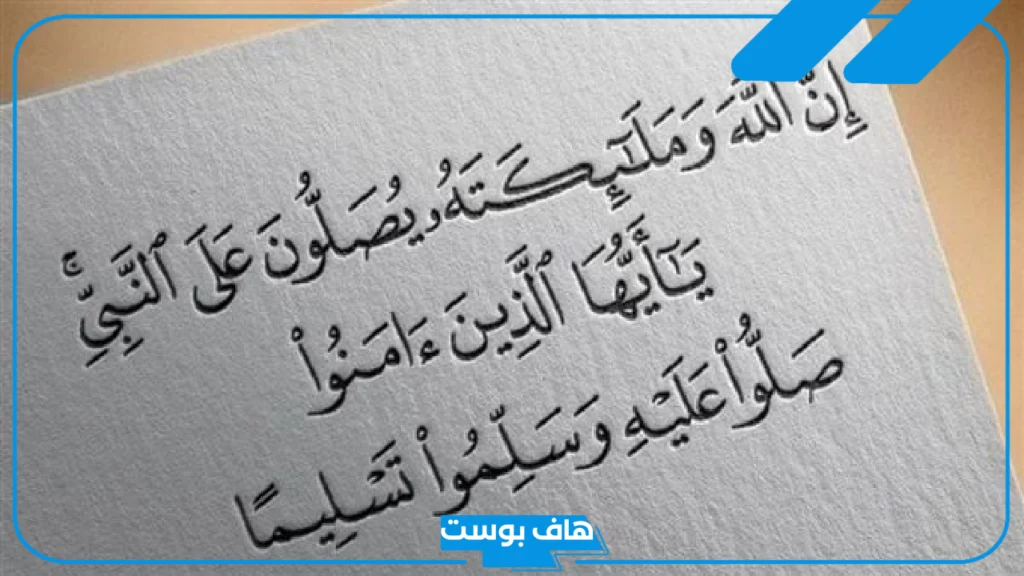 إِنَّ اللَّهَ وَمَلَٰٓئِكَتَهُۥ يُصَلُّونَ عَلَى ٱلنَّبِيِّۚ
يَٰٓأَيُّهَا ٱلَّذِينَ ءَامَنُوا۟
صَلُّوا۟ عَلَيْهِ وَسَلِّمُوا۟ تَسْلِيمًا
هاف بوست